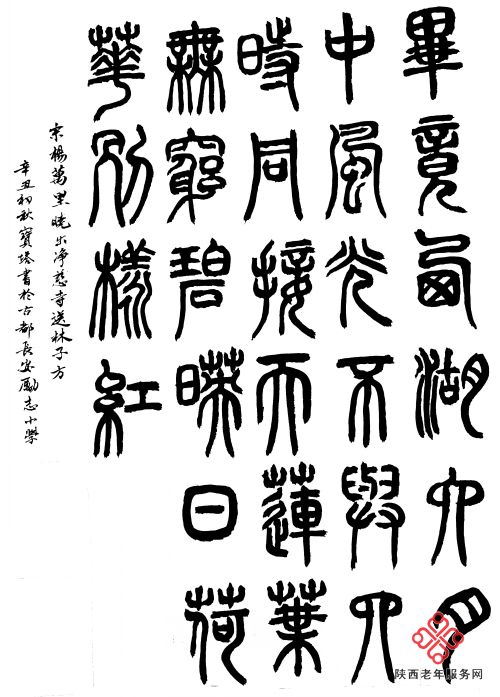 畢竟西湖六月
中風光不與四
時同接天蓮葉
無窮碧暎日荷
華別樣紅
宋楊萬里曉出淨慈寺送林子方
辛丑初秋寶塔書於古都長安勵志小學
陕西老年服务网